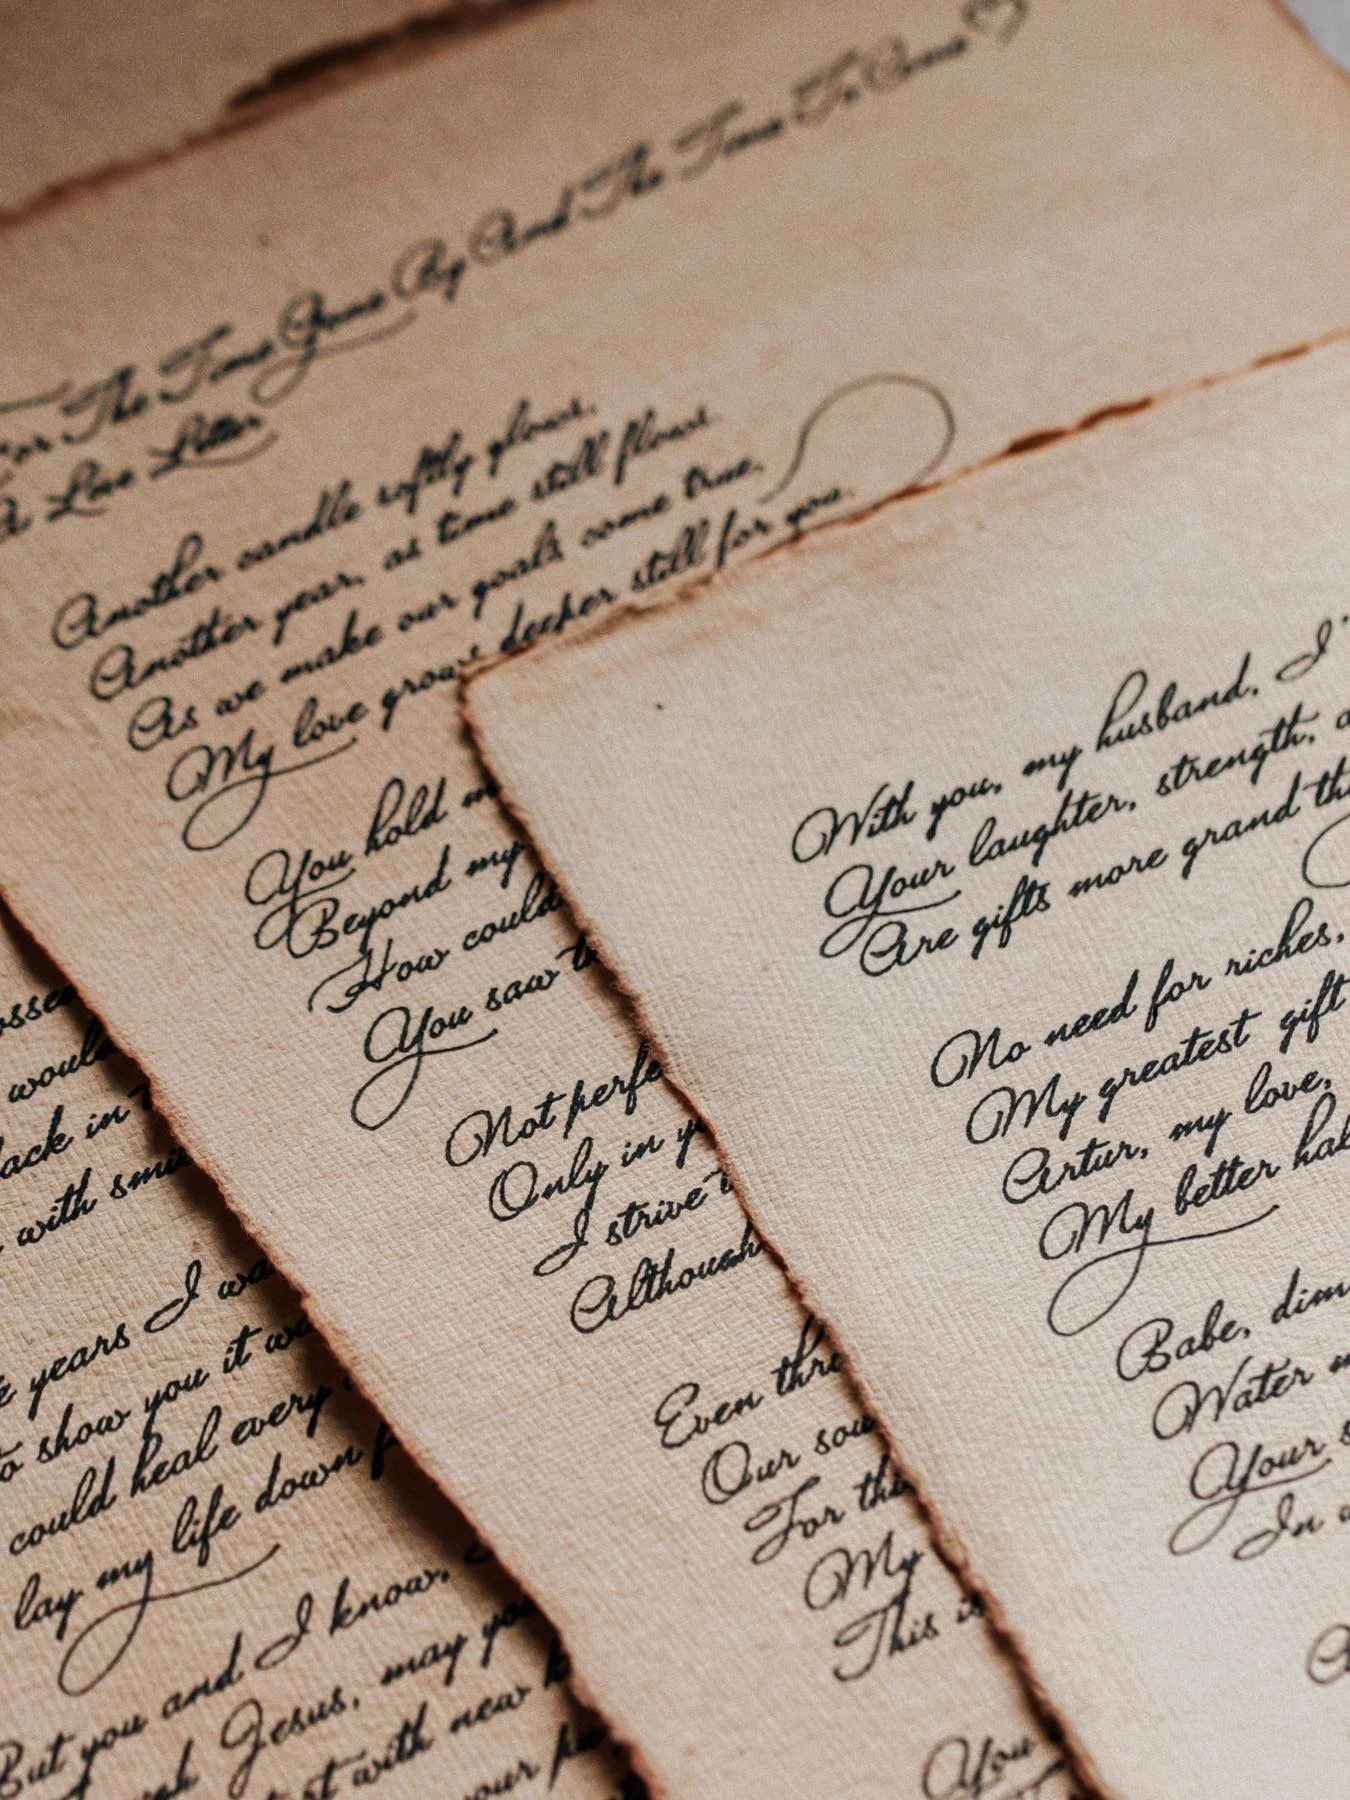 For The Time Gone By And The Time To Come
A Love Letter
Another candle softly glows,
Another year, as time still flows.
As we make our goals come true,
My love grows deeper still for you.
You hold
Beyond my
How could
You saw
Not perfe
Only in
I strive
Although
Even thro
Our sou
For this
My
This is
You
With you, my husband, I'
Your laughter, strength, a
Are gifts more grand tha
No need for riches,
My greatest gift
Artur, my love,
My better hal
Babe, dim
Water
Your s
In
would
back in
with smil
years I wa
to show you it wa
could heal every
lay my life down f
But you and I know,
Jesus, may you
with new h
your